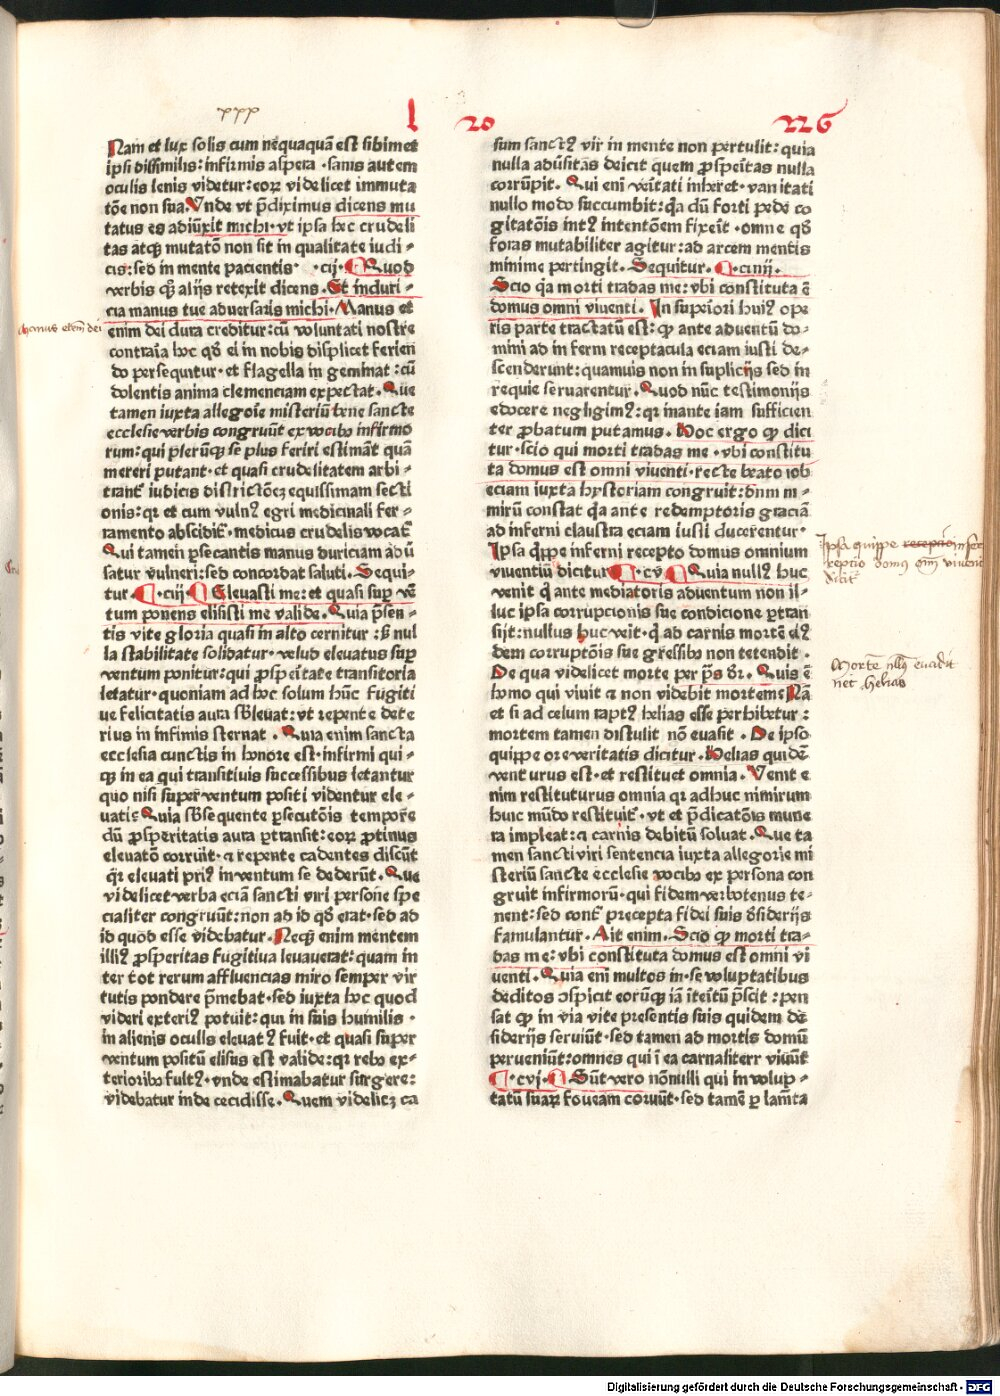 xxx
l 20 226
Nam et lux solis cum nequaquā est sibimet
ipsi dissimilis: infirmis aspera · sanis autem
oculis lenis videtur: eoꝝ videlicet immuta
tōe non sua. Vnde vt p̄diximus dicens mu
tatus es ad iūxit michi · vt ipsa hec crudeli
tas atqꝫ mutatō non sit in qualitate iudi ⸗
cis: sed in mente pacientis · cij · Quod
verbis qꝫ alijs retexit dicens. Et in duri ⸗
cia manus tue aduersaris michi. Manus et
enim dei dura creditur: cū voluntati nostre
contrariā hoc qd̄ ei in nobis displicet ferien
do persequitur · et flagella in geminat: cū
dolentis anima clemenciam expectat. Que
tamen iuxta allegoīe misteriū bene sancte
ecclesie verbis congruūt ex vocibꝯ infirmo
rum: qui plerūqꝫ se plus feriri estimāt quā
mereri putant · et quasi crudelitatem arbi ⸗
trant̄ iudicis districtōeꝫ equissimam secti
onis: qr et cum vulnꝰ egri medicinali fer ⸗
ramento abscidit̄ · medicus crudelis vocat̄
Qui tamen ꝑsecantis manus duriciam ad ū
satur vulneri: sed concordat saluti. Sequi ⸗
tur. · ciij · Eleuasti me: et quasi suꝑ vē
tum ponens elisisti me valide. Quia p̄sen ⸗
tis vite gloria quasi in alto cernitur: sꝫ nul
la stabilitate solidatur · velud eleuatus suꝑ
ventum ponitur: qui ꝓspeītate transitoria
letatur · quoniam ad hoc solum hūc fugiti
ue felicitatis aura sb̄leuat: vt repente dete
rius in infimis sternat. Quia enim sancta
ecclesia cunctis in honore est · infirmi qui ⸗
qꝫ in ea qui transitiuis successibus letantur
quo nisi super ventum positi videntur ele ⸗
uatis Quia sb̄sequente ꝑsecutōis tempore
dū ꝓsperitatis aura ꝑtransit: eoꝝ ꝓtinus
eleuatō corruit · ⁊ repente cadentes discūt
qꝛ eleuati priꝰ in ventum se dederūt. Que
videlicet verba eciā sancti viri persone spe
cialiter congruūt: non ad id qd̄ erat · sed ad
id quod esse videbatur. Necꝫ enim mentem
illiꝰ ꝓsperitas fugitiua leuauerat: quam in
ter tot rerum affluencias miro semper vir
tutis pondere p̄mebat · sed iuxta hoc quod
videri exteriꝰ potuit: qui in suis humilis ·
in alienis oculis eleuatꝰ fuit · et quasi super
ventum positū elisus est valide: qr rebꝯ ex ⸗
terioribꝯ fultꝰ · vnde estimabatur surgere:
videbatur inde cecidisse. Quem videlicꝫ ca
sum sanctꝰ vir in mente non pertulit: quia
nulla adūsitas deicit quem ꝓspeītas nulla
corrūpit. Qui eni veītati inheret · vanitati
nullo modo succumbit: qa dū forti pede co
gitatōis intꝰ intentōem fixeīt · omne qd̄
foras mutabiliter agitur: ad arcem mentis
minime pertingit. Sequitur. · ciiij ·
Scio qa morti tradas me: vbi constituta ē
domus omni viuenti. In supiori huiꝰ ope
ris parte tractatū est: qꝫ ante aduentū do ⸗
mini ad in ferni receptacula eciam iusti de ⸗
scenderunt: quamuis non in suplicijs sed in
requie seruarentur. Quod nūc testimonijs
edocere negligimꝰ: qr in ante iam sufficien
ter ꝓbatum putamus. Hoc ergo qꝫ dici
tur · scio qui morti tradas me · vbi constitu
ta domus est omni viuenti · recte beato iob
eciam iuxta hystoriam congruit: dum ni ⸗
mirū constat qa ante redemptoris graciā
ad inferni claustra eciam iusti ducerentur ·
Ipsa q̄ppe inferni recepto domus omnium
viuentiū dicitur · cv · Quia nullꝰ huc
venit q̄ ante mediatoris aduentum non il ⸗
luc ipsa corrupcionis sue condicione ꝑtran
sijt: nullus huc veīt · q̄ ad carnis mortē eiꝰ
dem corruptōis sue gressibꝯ non tetendit ·
De qua videlicet morte per p̄s dr̄. Quis ē
homo qui viuit ⁊ non videbit mortem: Nā
et si ad celum raptꝰ helias esse perhibetur:
mortem tamen distulit nō euasit. De ipso
quippe ore veritatis dicitur. Helias quidē
vent urus est · et restituet omnia. Venit e
nim restituturus omnia qr adhuc nimirum
huic mūdo restituit̄ · vt et p̄dicatōis mune
ra impleat: ⁊ carnis debitū soluat. Que ta
men sancti viri sentencia iuxta allegorie mi
steriū sancte ecclesie vocibꝯ ex persona con
gruit infirmorū · qui fidem verbotenus te ⸗
nent: sed contꝭ precepta fidei suis d̄siderijs
famulantur. Ait enim. Scio qꝫ morti tra ⸗
das me: vbi constituta domus est omni vi
uenti. Quia eni multos in se voluptatibus
deditos ɔspicit eorūqꝫ iā iteītū p̄scit: pen
sat qꝫ in via vite presentis suis quidem de
siderijs seruiūt · sed tamen ad mortis domū
perueniūt: omnes qui ī ea carnaliterr viuūt
· cvj · Sūt vero nōnulli qui in volup ⸗
tatū suaꝝ foueam corruūt · sed tamē ꝑ lam̄ta
Manus etem̄ dei
Ipsa quippe receptio infer
receptio domus om̄ viuenti
dicit̄
Mortē nllus euadit
nec helias
Digitalisierung gefördert durch die Deutsche Forschungsgemeinschaft - DFG